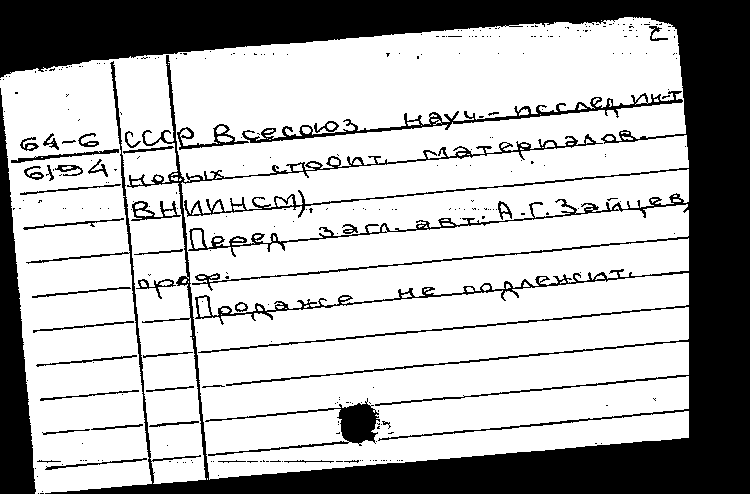 2
64-6 СССР. Всесоюз. науч.-исслед. ин-т
6194 новых строит. материалов.
ВНИИНСМ).
Перед загл. авт.: А.Г. Зайцев,
проф.
Продаже не подлежит.